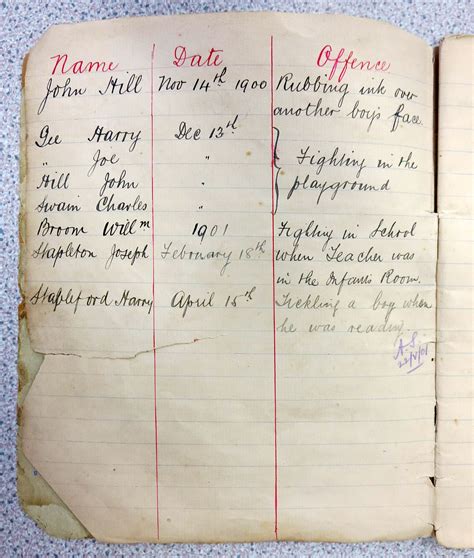 Name Date Offence
John Hill Nov 14th 1900 Rubbing ink over
another boy's face.
Gee Harry Dec 13th
" Joe " Fighting in the
Hill John " playground
Swain Charles "
Broom Willm 1901 Fighting in School
Stapleton Joseph February 18th when Teacher was
in the Infants Room.
Stapleford Harry April 15th Tickling a boy when
he was reading.
22/4/01